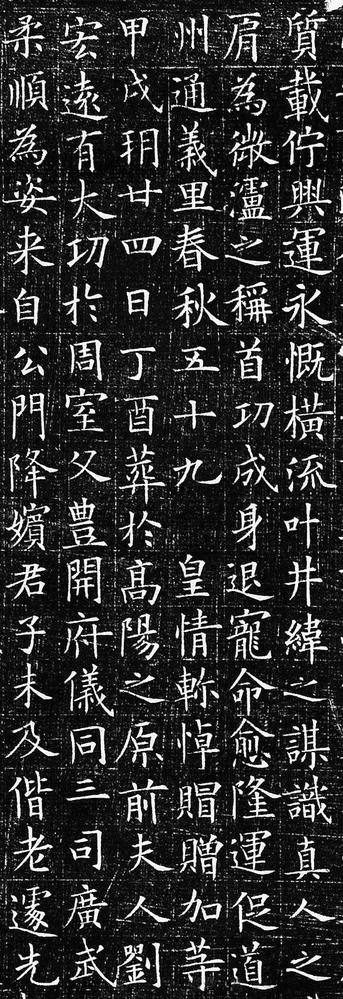 質載佇興運永慨橫流叶井緯之謀識真人之
肩為微瀘之稱首功成身退寵命愈隆運促道
州通義里春秋五十九 皇情軫悼賵贈加等
甲戌玥廿四日丁酉葬於高陽之原前夫人劉
宏遠有大功於周室父豊開府儀同三司廣武
柔順為姿来自公門降嬪君子未及偕老遽先